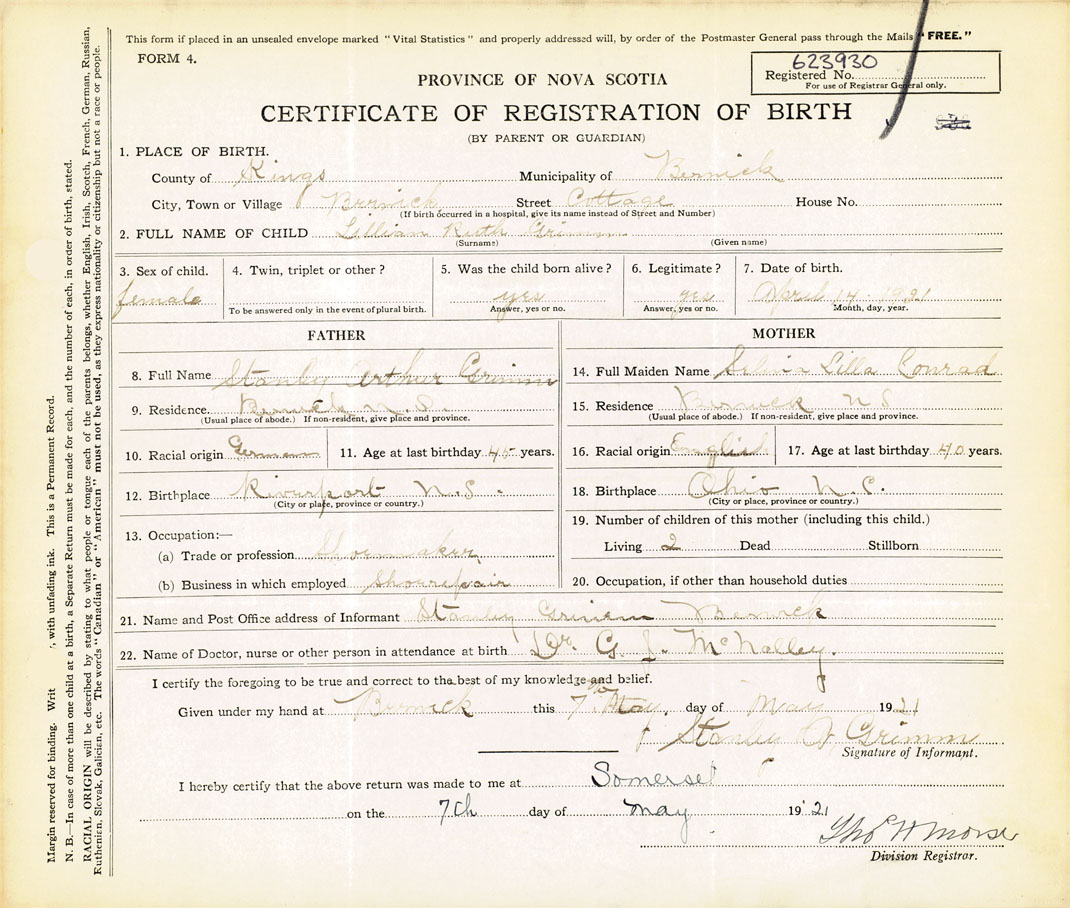 This form if placed in an unsealed envelope marked "Vital Statistics" and properly addressed will, by order of the Postmaster General pass through the Mails "FREE."
FORM 4.
623930
Registered No.
For use of Registrar General only.
PROVINCE OF NOVA SCOTIA
CERTIFICATE OF REGISTRATION OF BIRTH
(BY PARENT OR GUARDIAN)
1. PLACE OF BIRTH.
County of Kings Municipality of Berwick
City, Town or Village Berwick Street Cottage House No.
(If birth occurred in a hospital, give its name instead of Street and Number)
2. FULL NAME OF CHILD Lillian Ruth Grimm
(Surname) (Given name)
3. Sex of child. 4. Twin, triplet or other? 5. Was the child born alive? 6. Legitimate? 7. Date of birth.
female yes yes April 14 1921
To be answered only in the event of plural birth. Answer, yes or no. Answer, yes or no. Month, day, year.
FATHER
8. Full Name Stanley Arthur Grimm
9. Residence. Berwick N.S.
(Usual place of abode.) If non-resident, give place and province.
10. Racial origin German 11. Age at last birthday 45 years.
12. Birthplace Riverport N.S.
(City or place, province or country.)
13. Occupation:—
(a) Trade or profession Shoemaker
(b) Business in which employed Shoerepair
MOTHER
14. Full Maiden Name Lilla Conrad
15. Residence Berwick N S
(Usual place of abode.) If non-resident, give place and province.
16. Racial origin English 17. Age at last birthday 40 years.
18. Birthplace Ohio N.S.
(City or place, province or country.)
19. Number of children of this mother (including this child.)
Living 2 Dead Stillborn
20. Occupation, if other than household duties
21. Name and Post Office address of Informant Stanley Grimm Berwick
22. Name of Doctor, nurse or other person in attendance at birth Dr. G. J. McNalley.
I certify the foregoing to be true and correct to the best of my knowledge and belief.
Given under my hand at Berwick this 7th day of May 1921
Stanley A Grimm
Signature of Informant.
I hereby certify that the above return was made to me at Somerset
on the 7th day of May 1921
Thos H Morse
Division Registrar.
Margin reserved for binding. Writ , with unfading ink. This is a Permanent Record.
N. B.—In case of more than one child at a birth, a Separate Return must be made for each, and the number of each, in order of birth, stated.
RACIAL ORIGIN will be described by stating to what people or tongue each of the parents belongs, whether English, Irish, Scotch, French, German, Russian,
Ruthenian, Slovak, Galician, etc. The words "Canadian" or "American" must not be used, as they express nationality or citizenship but not a race or people.